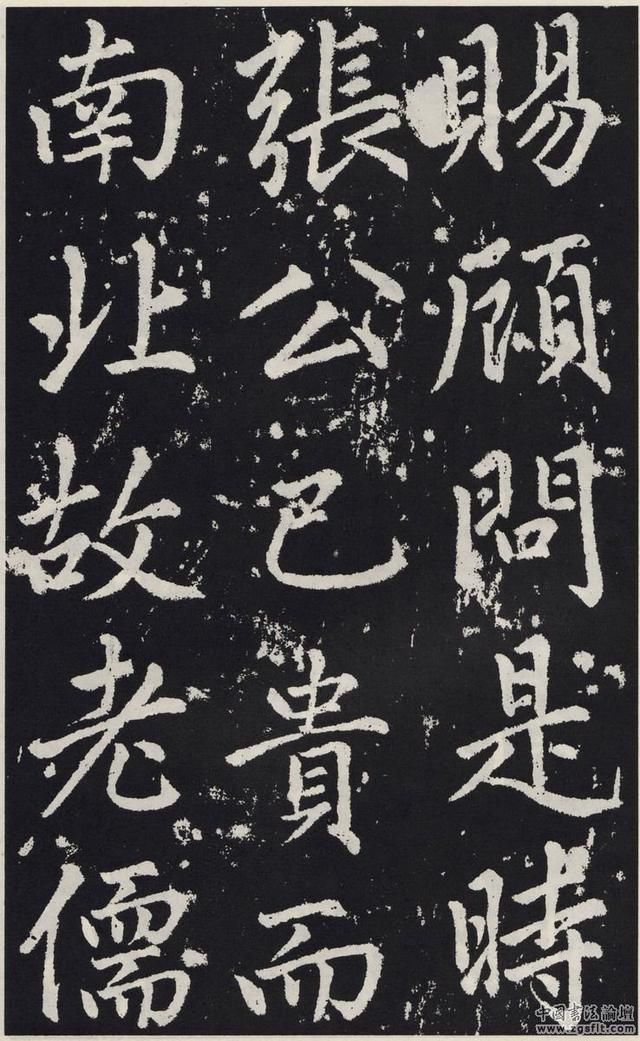 賜顧問是時
張公已貴而
南北故老儒
中国书法論壇
www.zgsflt.com